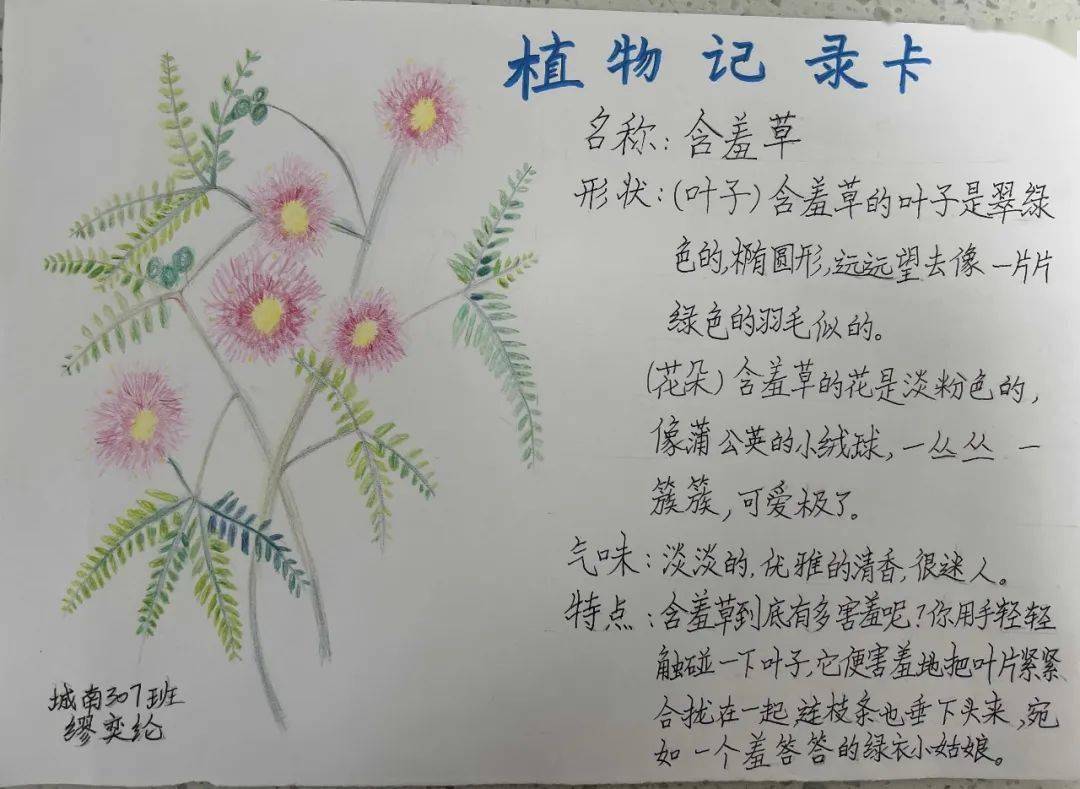 植物记录卡
名称：含羞草
形状：(叶子)含羞草的叶子是翠绿
色的,椭圆形,远远望去像一片片
绿色的羽毛似的。
(花朵)含羞草的花是淡粉色的,
像蒲公英的小绒球,一丛丛一
簇簇,可爱极了。
气味：淡淡的,优雅的清香,很迷人。
特点：含羞草到底有多害羞呢？你用手轻轻
触碰一下叶子,它便害羞地把叶片紧紧
合拢在一起,连枝条也垂下头来,宛
如一个羞答答的绿衣小姑娘。
城南307班
缪奕纶